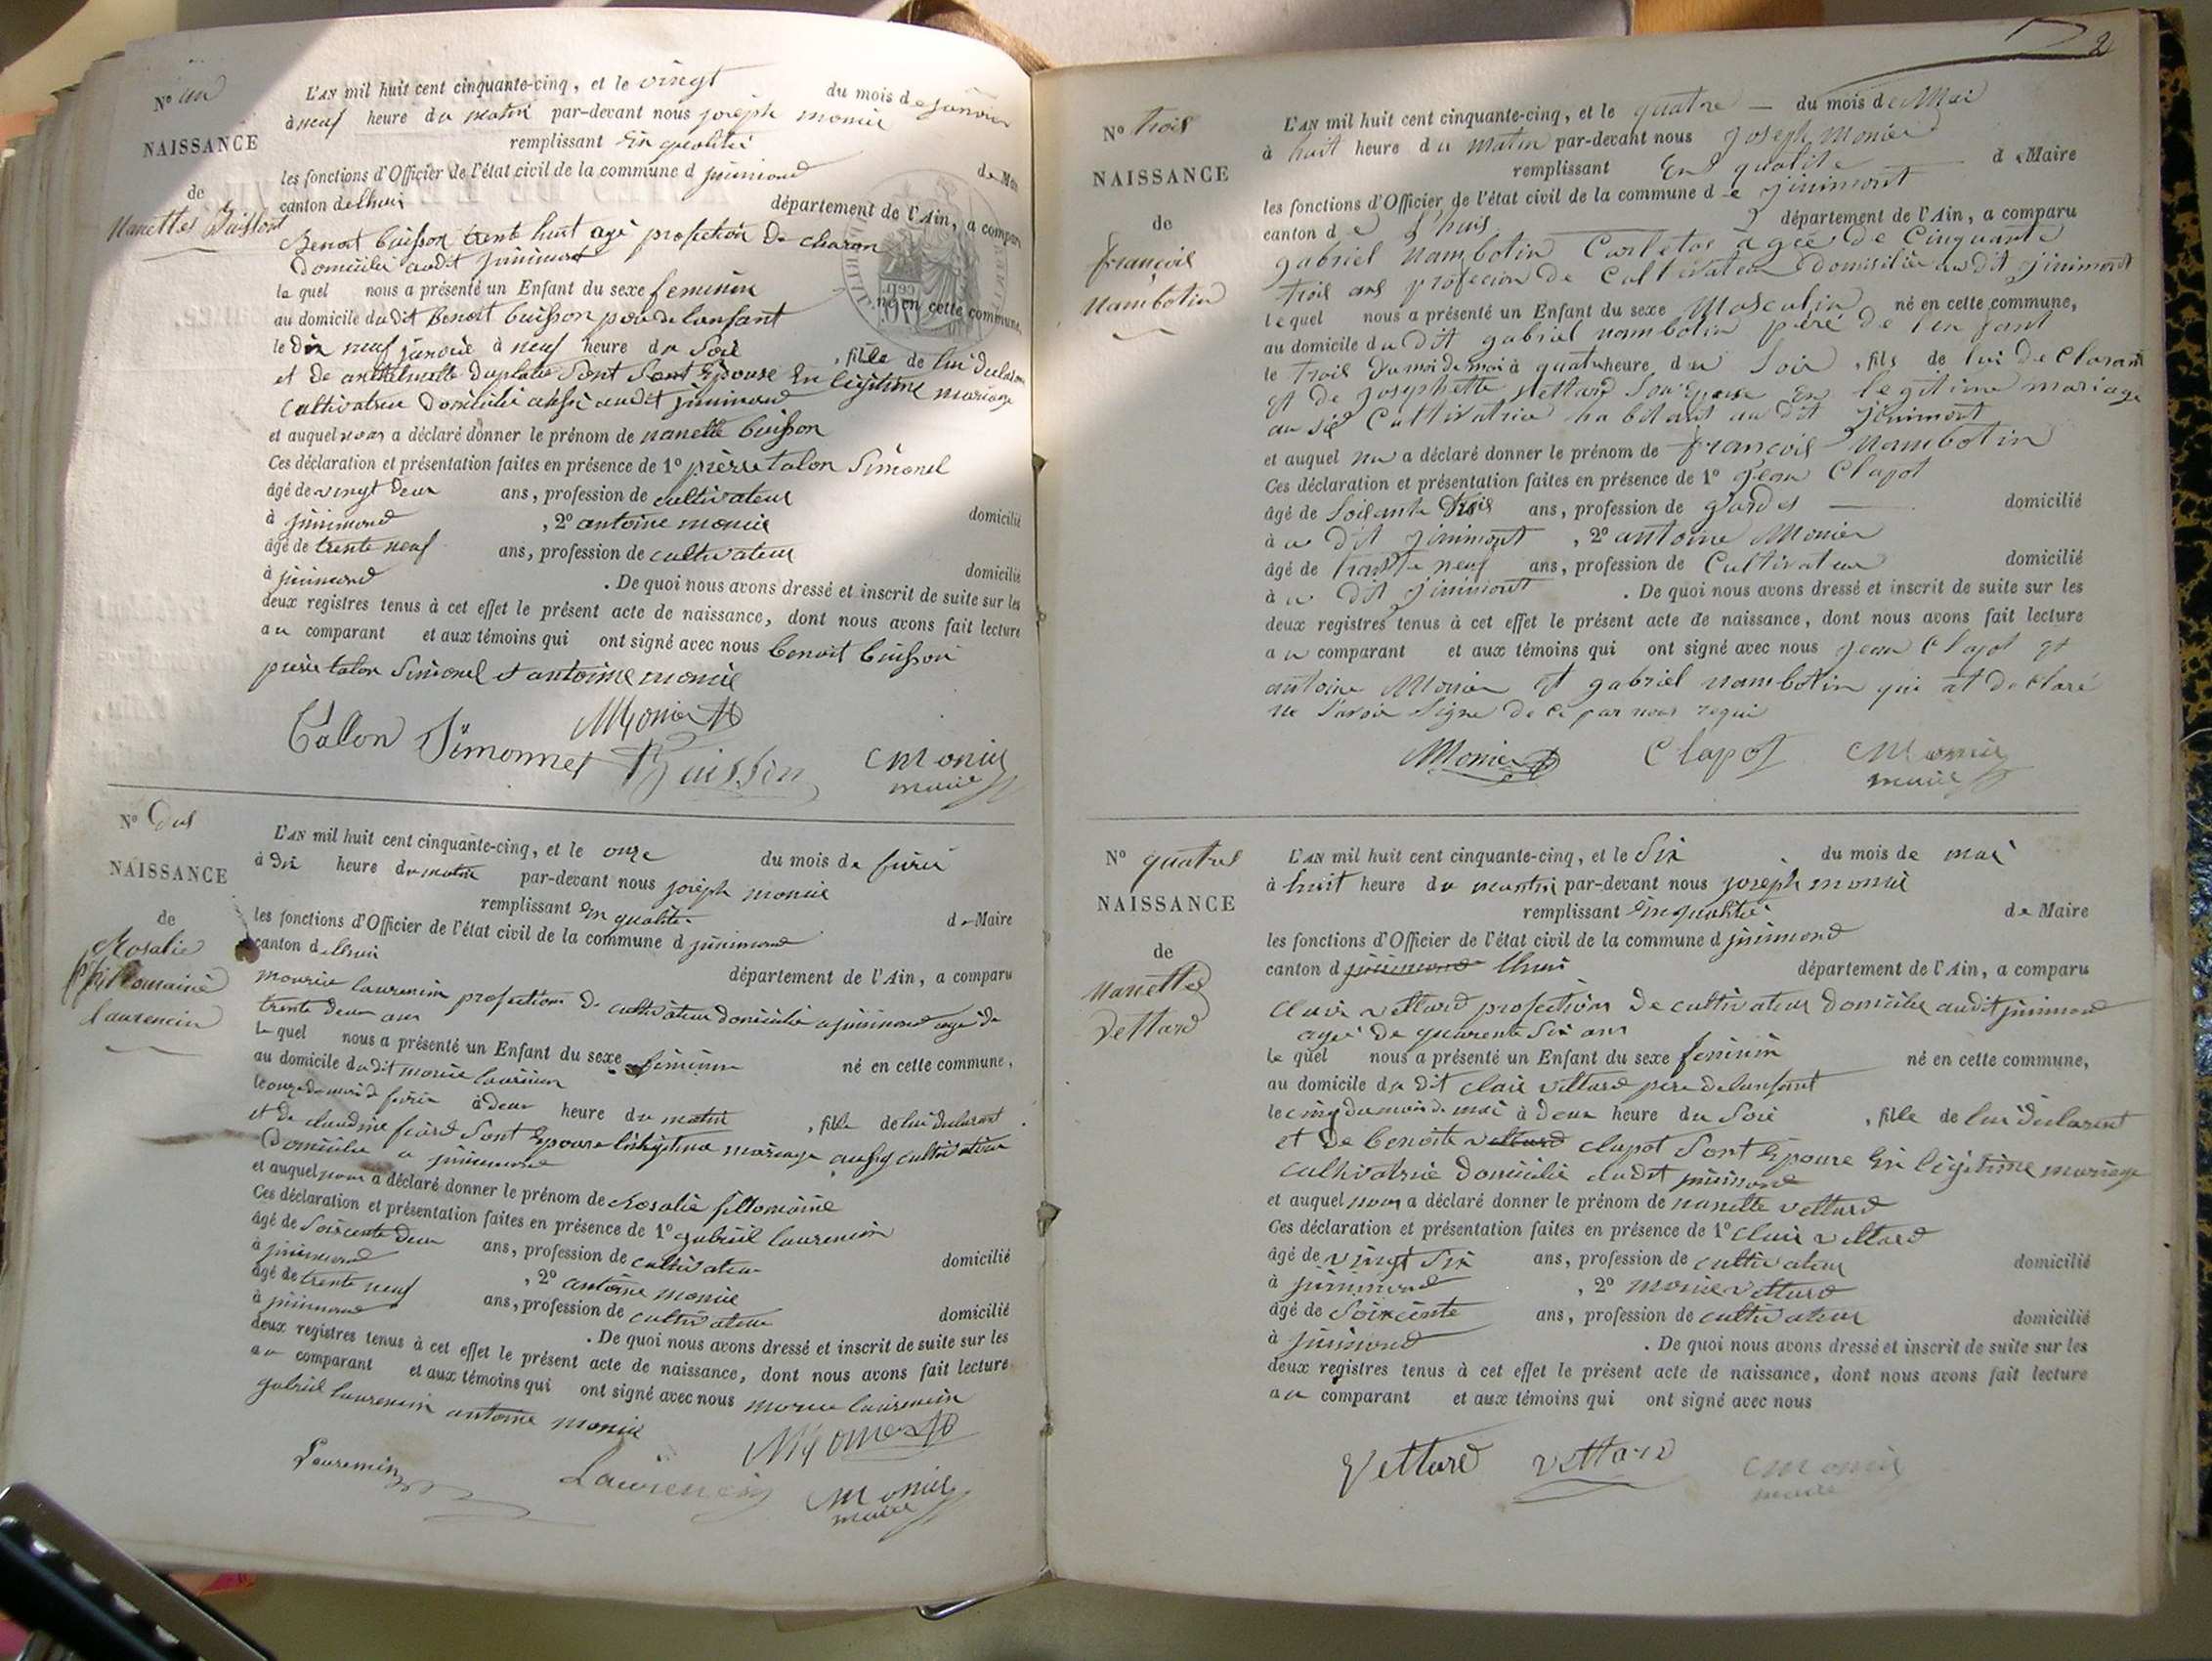 N° un
NAISSANCE
de
Nanettes Buisson
L'AN mil huit cent cinquante-cinq, et le vingt du mois de janvier
à neuf heure du matin par-devant nous joseph monié
remplissant En qualité de Maire
les fonctions d'Officier de l'état civil de la commune d jinimond
canton de lhuis département de l'Ain, a comparu
Benoit buisson trente huit agé profection de charon
Domicilié audit jinimond
le quel nous a présenté un Enfant du sexe feminin né en cette commune,
au domicile du dit Benoit buisson père de lanfant
le dix neuf janvié à neuf heure du Soir , fille de lui déclarant
et de anthelmette duplatre Sont Sont Epouse En légitime mariage
Cultivatrice Domicilié aussi audit jinimond
et auquel nous a déclaré donner le prénom de nanette buisson
Ces déclaration et présentation faites en présence de 1° pierre talon Simonel
âgé de vingt deux ans, profession de cultivateur domicilié
à jinimond , 2° antoine monié
âgé de trente neuf ans, profession de cultivateur domicilié
à jinimond . De quoi nous avons dressé et inscrit de suite sur les
deux registres tenus à cet effet le présent acte de naissance, dont nous avons fait lecture
au comparant et aux témoins qui ont signé avec nous Benoit buisson
pierre talon Simonel et antoine monié
Talon Simonnet Monier Buisson Monier
maire
N° Deux
NAISSANCE
de
Rosalie
Phillomainé
laurencin
L'AN mil huit cent cinquante-cinq, et le onze du mois de févrié
à dix heure du matin par-devant nous joseph monié
remplissant En qualité de Maire
les fonctions d'Officier de l'état civil de la commune d jinimond
canton de lhuis département de l'Ain, a comparu
mourice laurencin profection de cultivateur domicilié a jinimond agé de
trente deux ans
le quel nous a présenté un Enfant du sexe féminin né en cette commune,
au domicile du dit morice laurencin
le onze du mois de févrié à deux heure du matin , fille de lui déclarant
et de claudine Sont Epouse légitime mariage aussy cultivatrice
Domicilié a jinimond
et auquel nous a déclaré donner le prénom de Rosalie fillomainé
Ces déclaration et présentation faites en présence de 1° gabriel laurencin
âgé de Soixcente deux ans, profession de cultivateur domicilié
à jinimond , 2° antoine monié
âgé de trente neuf ans, profession de cultivateur domicilié
à jinimond . De quoi nous avons dressé et inscrit de suite sur les
deux registres tenus à cet effet le présent acte de naissance, dont nous avons fait lecture
au comparant et aux témoins qui ont signé avec nous morice laurencin
gabriel laurencin antoine monié
Laurencin Laurencin Monier Monier
maire
2
N° trois
NAISSANCE
de
françois
Nambotin
L'AN mil huit cent cinquante-cinq, et le quatre du mois de Mai
à huit heure du matin par-devant nous Joseph Monier
remplissant En qualité de Maire
les fonctions d'Officier de l'état civil de la commune de jinimont
canton de Lhuis département de l'Ain, a comparu
gabriel Nambotin agée de Cinquante
trois ans profecion de Cultivateur domisilié au dit jinimont
lequel nous a présenté un Enfant du sexe Masculin né en cette commune,
au domicile du Dit gabriel nambotin père de l'enfant
le trois Du moi de mai à quatre heure du Soir , fils de lui Declarant
Et de josephette Vettard Son Epouse En legitime mariage
au sié Cultivatrice habitant au Dit jinimont
et auquel nu a déclaré donner le prénom de françois Nambotin
Ces déclaration et présentation faites en présence de 1° jean Clapot
âgé de Soisante trois ans, profession de gardes domicilié
à u Dit jinimont , 2° antoine Monier
âgé de trante neuf ans, profession de Cultivateur domicilié
à u Dit jinimont . De quoi nous avons dressé et inscrit de suite sur les
deux registres tenus à cet effet le présent acte de naissance, dont nous avons fait lecture
au comparant et aux témoins qui ont signé avec nous jean Clapot Et
antoine Monier Et gabriel nambotin qui at declaré
ne Savoir Signe de ce par nous requi
Monier Clapot Monier
maire
N° quatres
NAISSANCE
de
Nanettes
Vettard
L'AN mil huit cent cinquante-cinq, et le Six du mois de mai
à huit heure du mantin par-devant nous joseph monié
remplissant En qualité de Maire
les fonctions d'Officier de l'état civil de la commune d jinimond
canton d jinimond lhuis département de l'Ain, a comparu
clair vettard profection de cultivateur domicilié audit jinimond
agé de quarente Six ans
le quel nous a présenté un Enfant du sexe féminin né en cette commune,
au domicile du dit clair vettard père de lanfant
le cinq du mois de mai à deux heure du Soir , fille de lui déclarent
et de benoite vettard clapot Sont Epouse En légitime mariage
cultivatrice domicilié audit jinimond
et auquel nous a déclaré donner le prénom de nanette vettard
Ces déclaration et présentation faites en présence de 1° clair vettard
âgé de vingt Six ans, profession de cultivateur domicilié
à jinimond , 2° vettard
âgé de Soixcente ans, profession de cultivateur domicilié
à jinimond . De quoi nous avons dressé et inscrit de suite sur les
deux registres tenus à cet effet le présent acte de naissance, dont nous avons fait lecture
au comparant et aux témoins qui ont signé avec nous
Vettard vettard Monier
maire